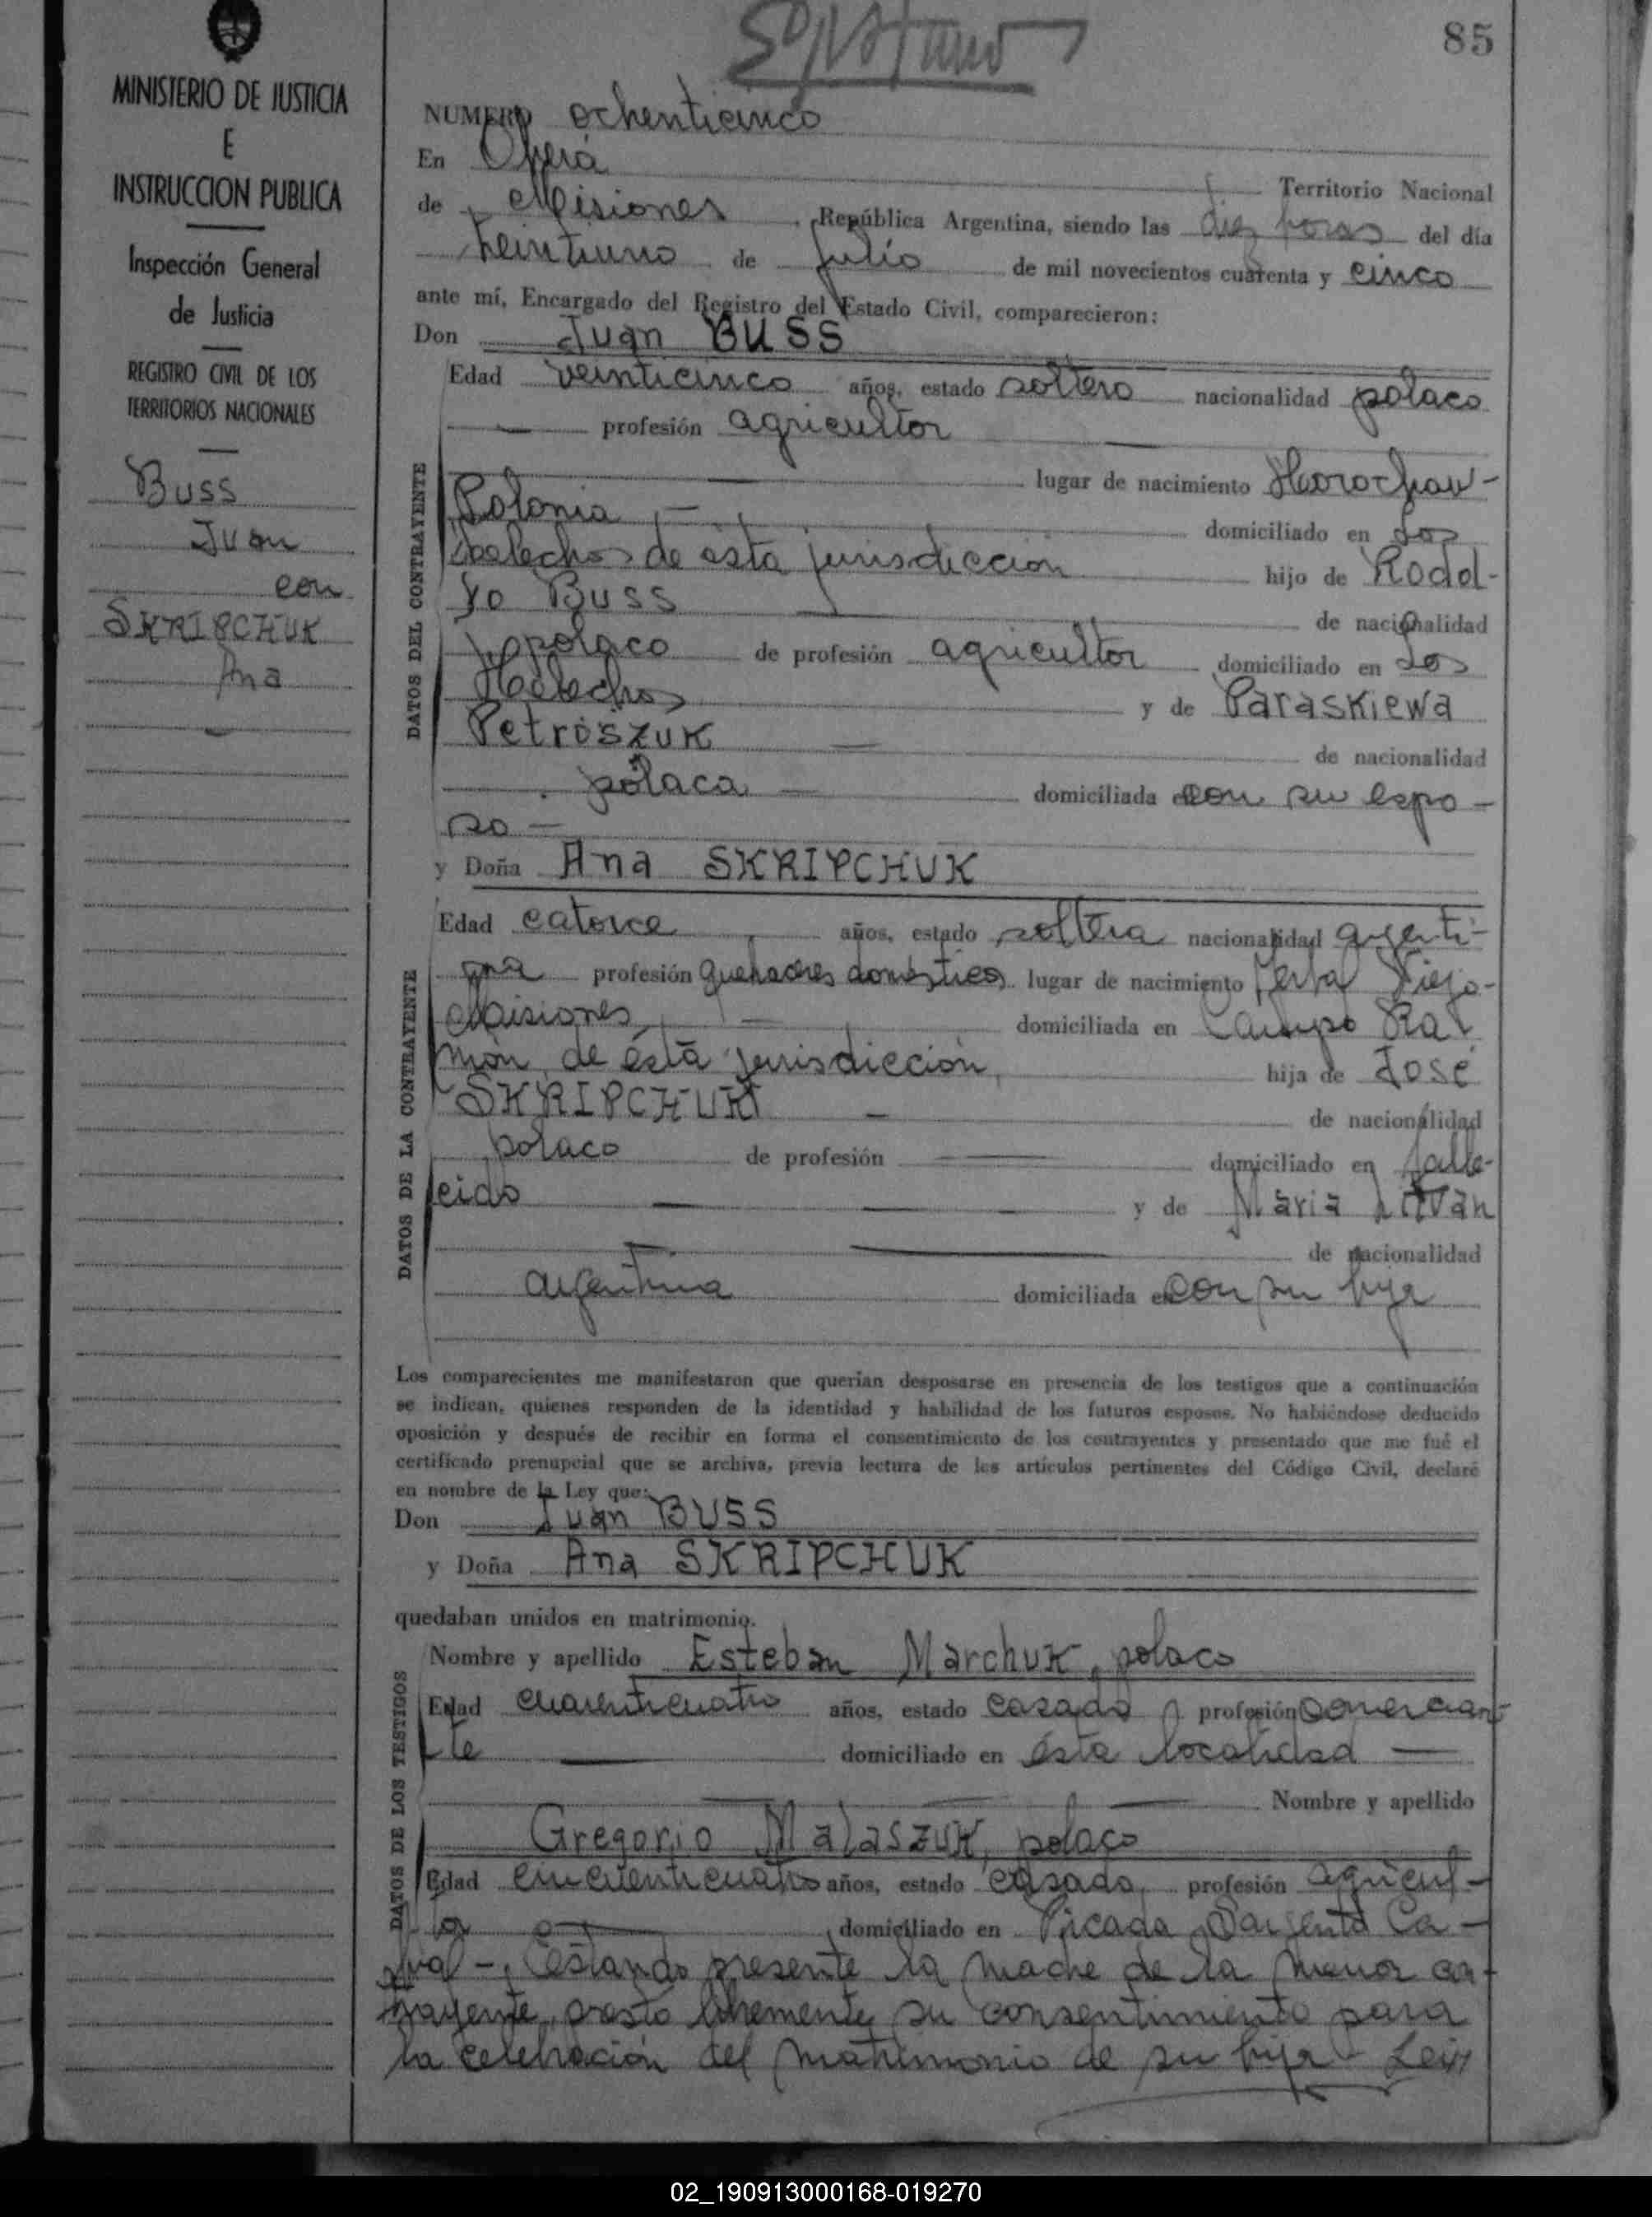 85
MINISTERIO DE JUSTICIA
E
INSTRUCCION PUBLICA
Inspección General
de Justicia
REGISTRO CIVIL DE LOS
TERRITORIOS NACIONALES
Buss
Juan
con
SKRIPCHUK
Ana
NUMERO ochenticinco
En Oberá
Territorio Nacional
de Misiones, República Argentina, siendo las diez horas del día
veintiuno de julio de mil novecientos cuarenta y cinco
ante mí, Encargado del Registro del Estado Civil, comparecieron:
Don Juan BUSS
DATOS DEL CONTRAYENTE
Edad veinticinco años, estado soltero nacionalidad polaco
— profesión agricultor —
— lugar de nacimiento Horochow-
Polonia, — domiciliado en Los
Helechos de ésta jurisdicción hijo de Rodol-
fo Buss de nacionalidad
polaco de profesión agricultor domiciliado en Los
Helechos y de Paraskiewa
Petroszuk — de nacionalidad
polaca — domiciliada con su espo-
so —
y Doña Ana SKRIPCHUK
DATOS DE LA CONTRAYENTE
Edad catorce años, estado soltera nacionalidad argenti-
na profesión quehaceres domésticos lugar de nacimiento Yerbal Viejo-
Misiones — domiciliada en Campo Ra-
món, de ésta jurisdicción, hija de José
SKRIPCHUK — de nacionalidad
polaco de profesión — domiciliado en falle-
cido — y de María Litvan
— de nacionalidad
argentina domiciliada en con su hija
Los comparecientes me manifestaron que querían desposarse en presencia de los testigos que a continuación
se indican, quienes responden de la identidad y habilidad de los futuros esposos. No habiéndose deducido
oposición y después de recibir en forma el consentimiento de los contrayentes y presentado que me fué el
certificado prenupcial que se archiva, previa lectura de los artículos pertinentes del Código Civil, declaré
en nombre de la Ley que:
Don Juan BUSS
y Doña Ana SKRIPCHUK
quedaban unidos en matrimonio.
DATOS DE LOS TESTIGOS
Nombre y apellido Esteban Marchuk, polaco
Edad cuarenticuatro años, estado casado profesión comercian-
te — domiciliado en ésta localidad —
— Nombre y apellido
Gregorio Malaszuk, polaco
Edad cincuenticuatro años, estado casado, profesión agricul-
tor domiciliado en Picada Sargento Ca-
bral -, Estando presente la madre de la menor con-
trayente, prestó libremente su consentimiento para
la celebración del matrimonio de su hija - Leid
02_190913000168-019270